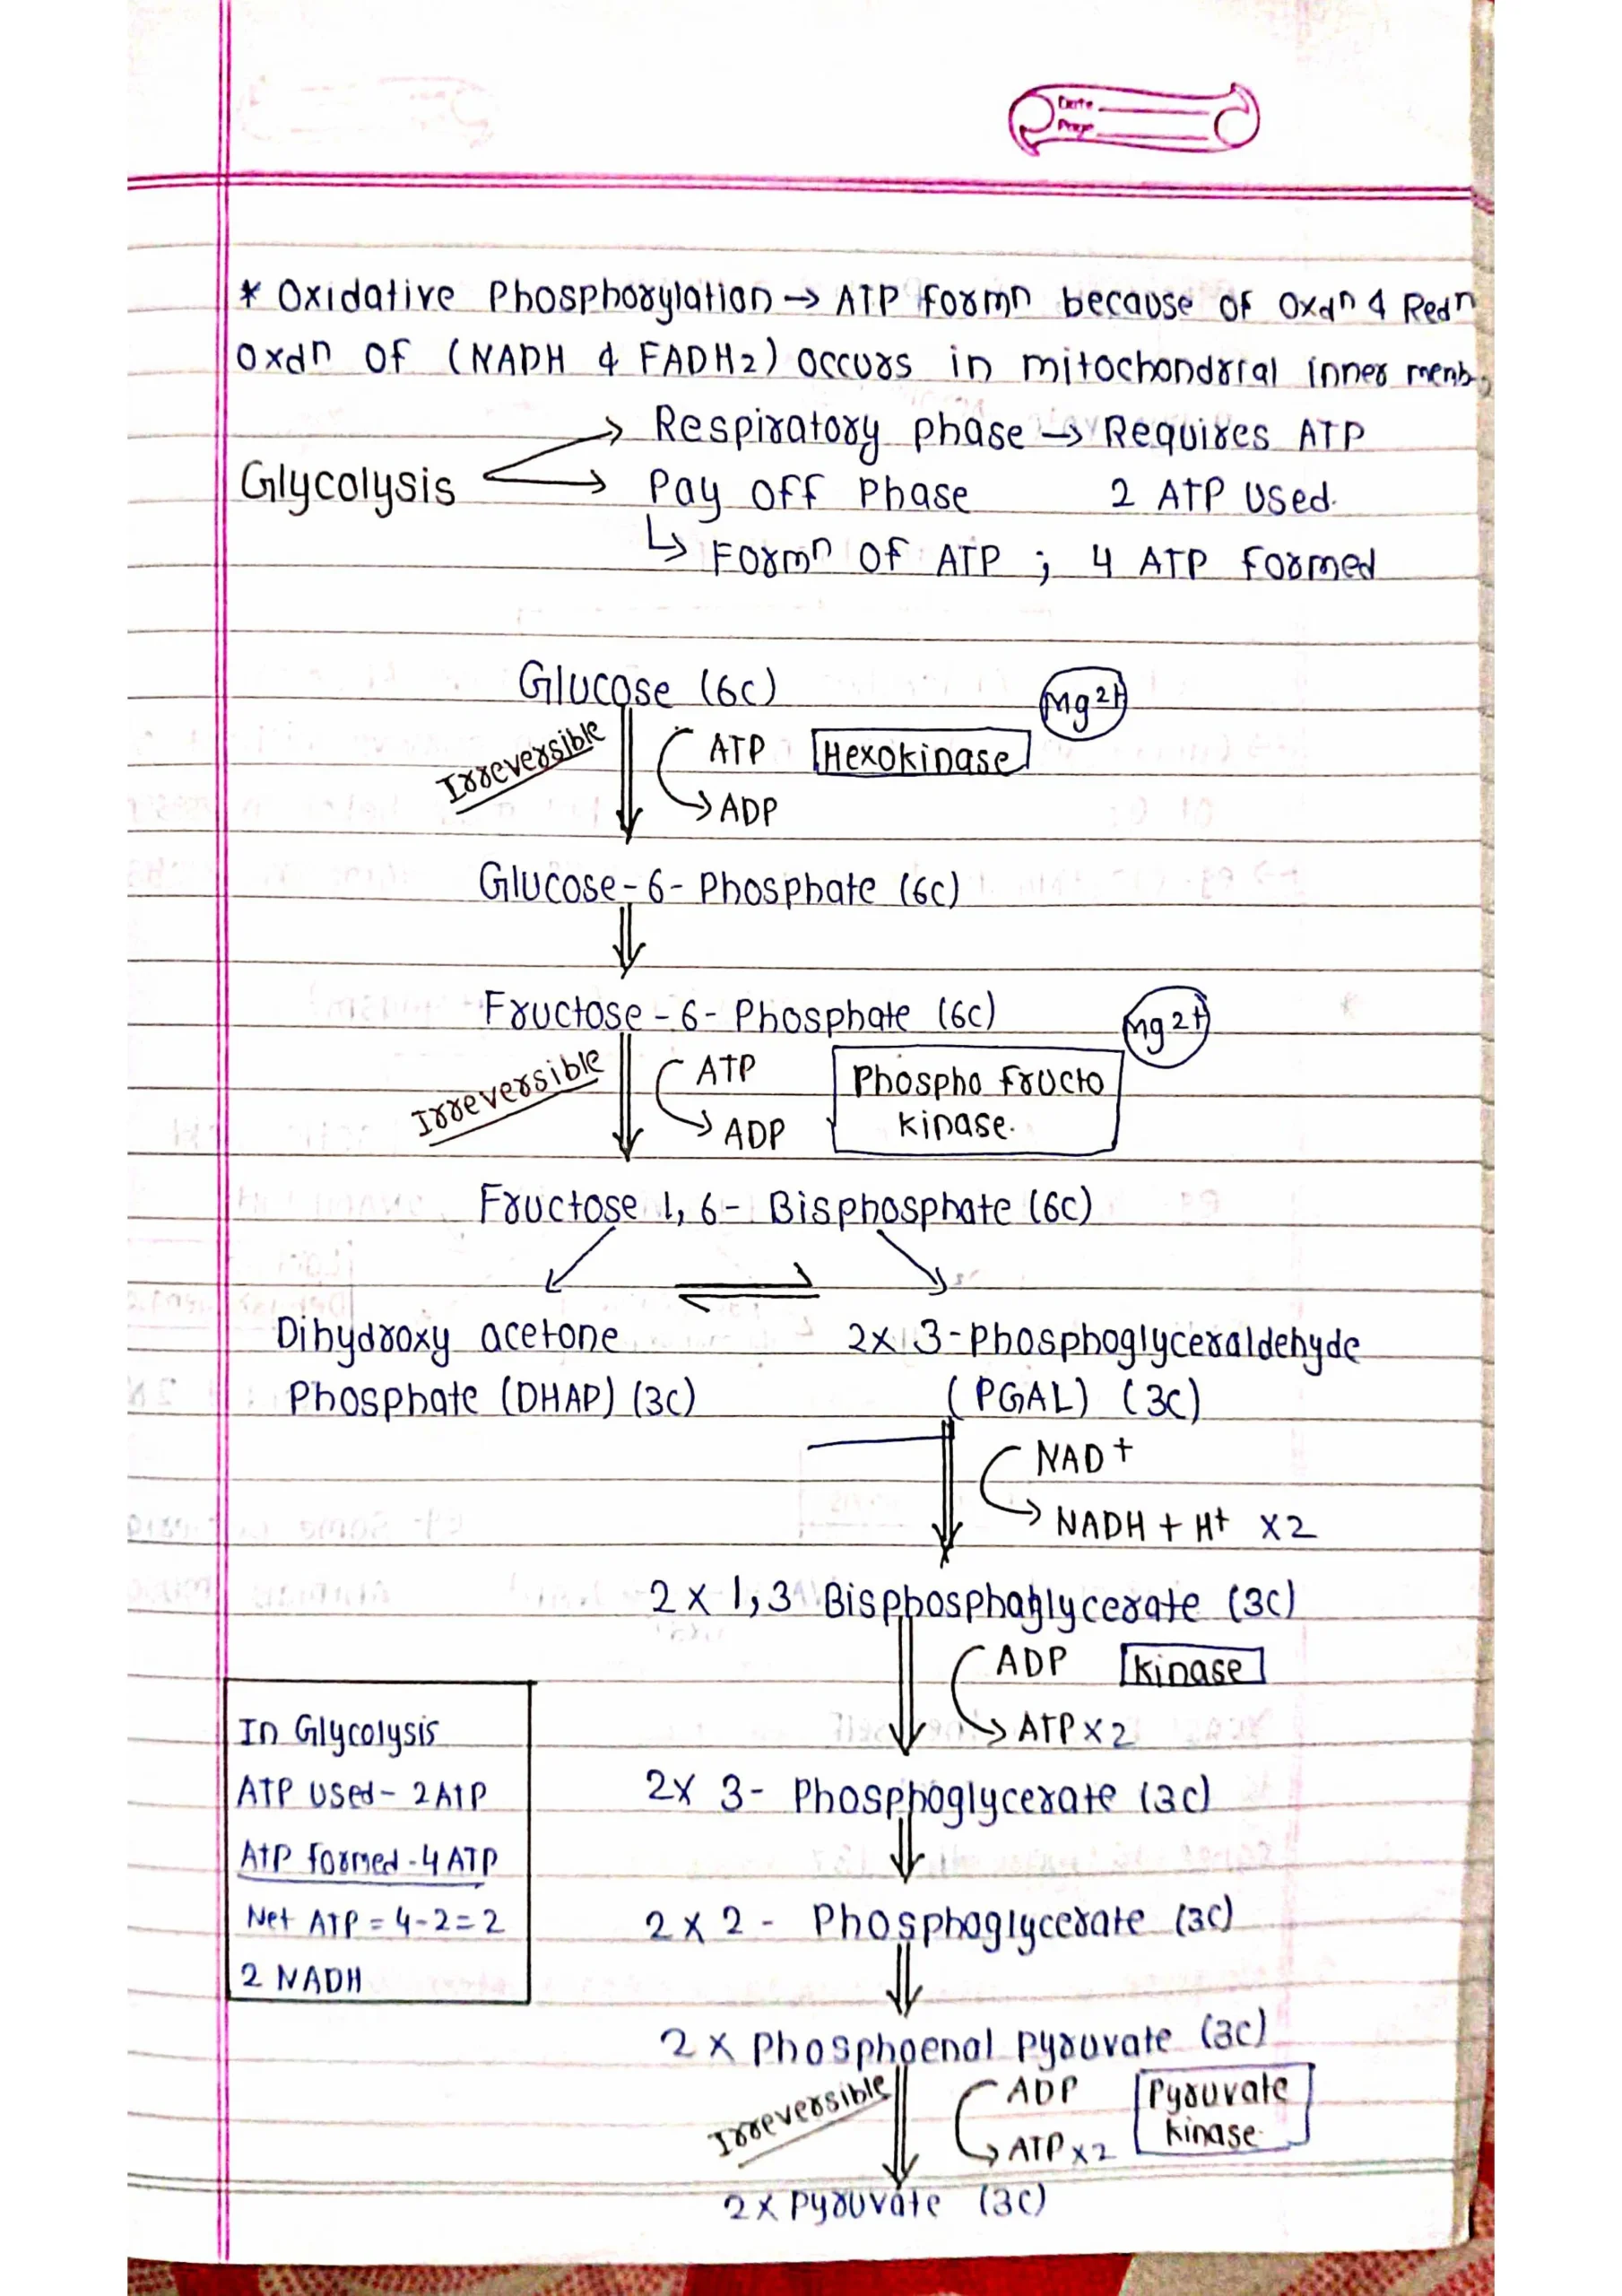 Date
Page
* Oxidative Phosphorylation → ATP formⁿ because of Oxdⁿ & Redⁿ
Oxdⁿ of (NADH & FADH2) occurs in mitochondrial inner memb,
→ Respiratory phase → Requires ATP
Glycolysis → Pay off Phase 2 ATP used.
↳ Formⁿ of ATP ; 4 ATP formed
Glucose (6C) Mg2+
Irreversible ATP Hexokinase
ADP
Glucose-6-Phosphate (6C)
Fructose-6-Phosphate (6C) Mg2+
Irreversible ATP Phospho fructo
ADP kinase.
Fructose 1,6-Bisphosphate (6C)
Dihydroxy acetone ⇌ 2x 3-Phosphoglyceraldehyde
Phosphate (DHAP) (3C) (PGAL) (3C)
NAD+
NADH + H+ x2
2 x 1,3 Bisphosphoglycerate (3C)
ADP kinase
ATP x 2
2x 3- Phosphoglycerate (3C)
2 x 2 - Phosphoglycerate (3C)
2 x Phosphoenol pyruvate (3C)
Irreversible ADP Pyruvate
ATP x2 kinase.
2 x Pyruvate (3C)
In Glycolysis
ATP used - 2 ATP
ATP formed - 4 ATP
Net ATP = 4-2=2
2 NADH